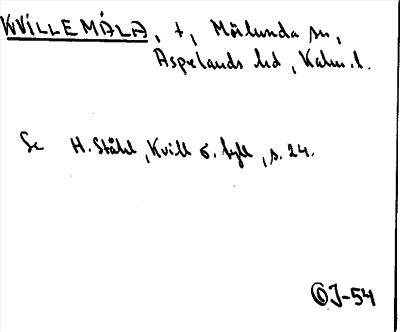 KVILLEMÅLA, t, Mörlunda sn,
Aspelands hd, Kalm. l.
Se H. Ståhl, Kvill o. fyll, s. 24.
ÖJ-54